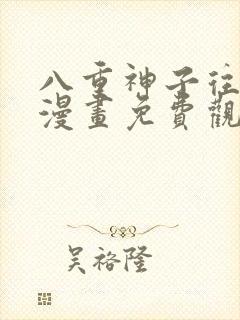 八重神子往
漫畫免費觀
吳裕隆